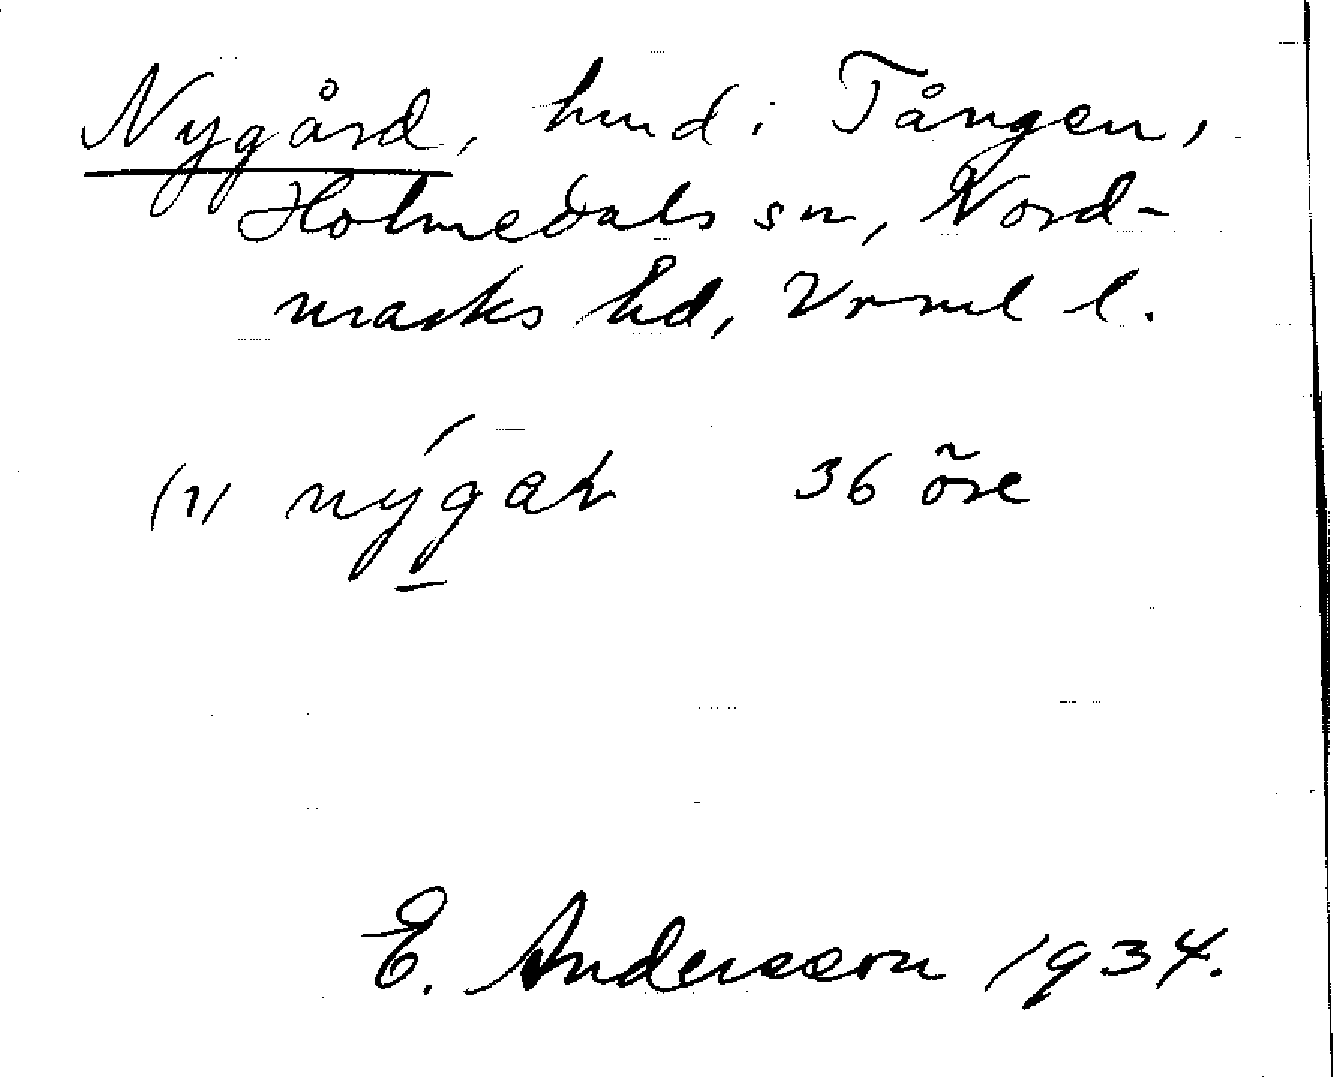 Nygård, hmd i Tången,
Holmedals sn, Nord-
marks hd, Vrml l.
(1) nýgaṯ 36 öre
E. Andersson 1934.